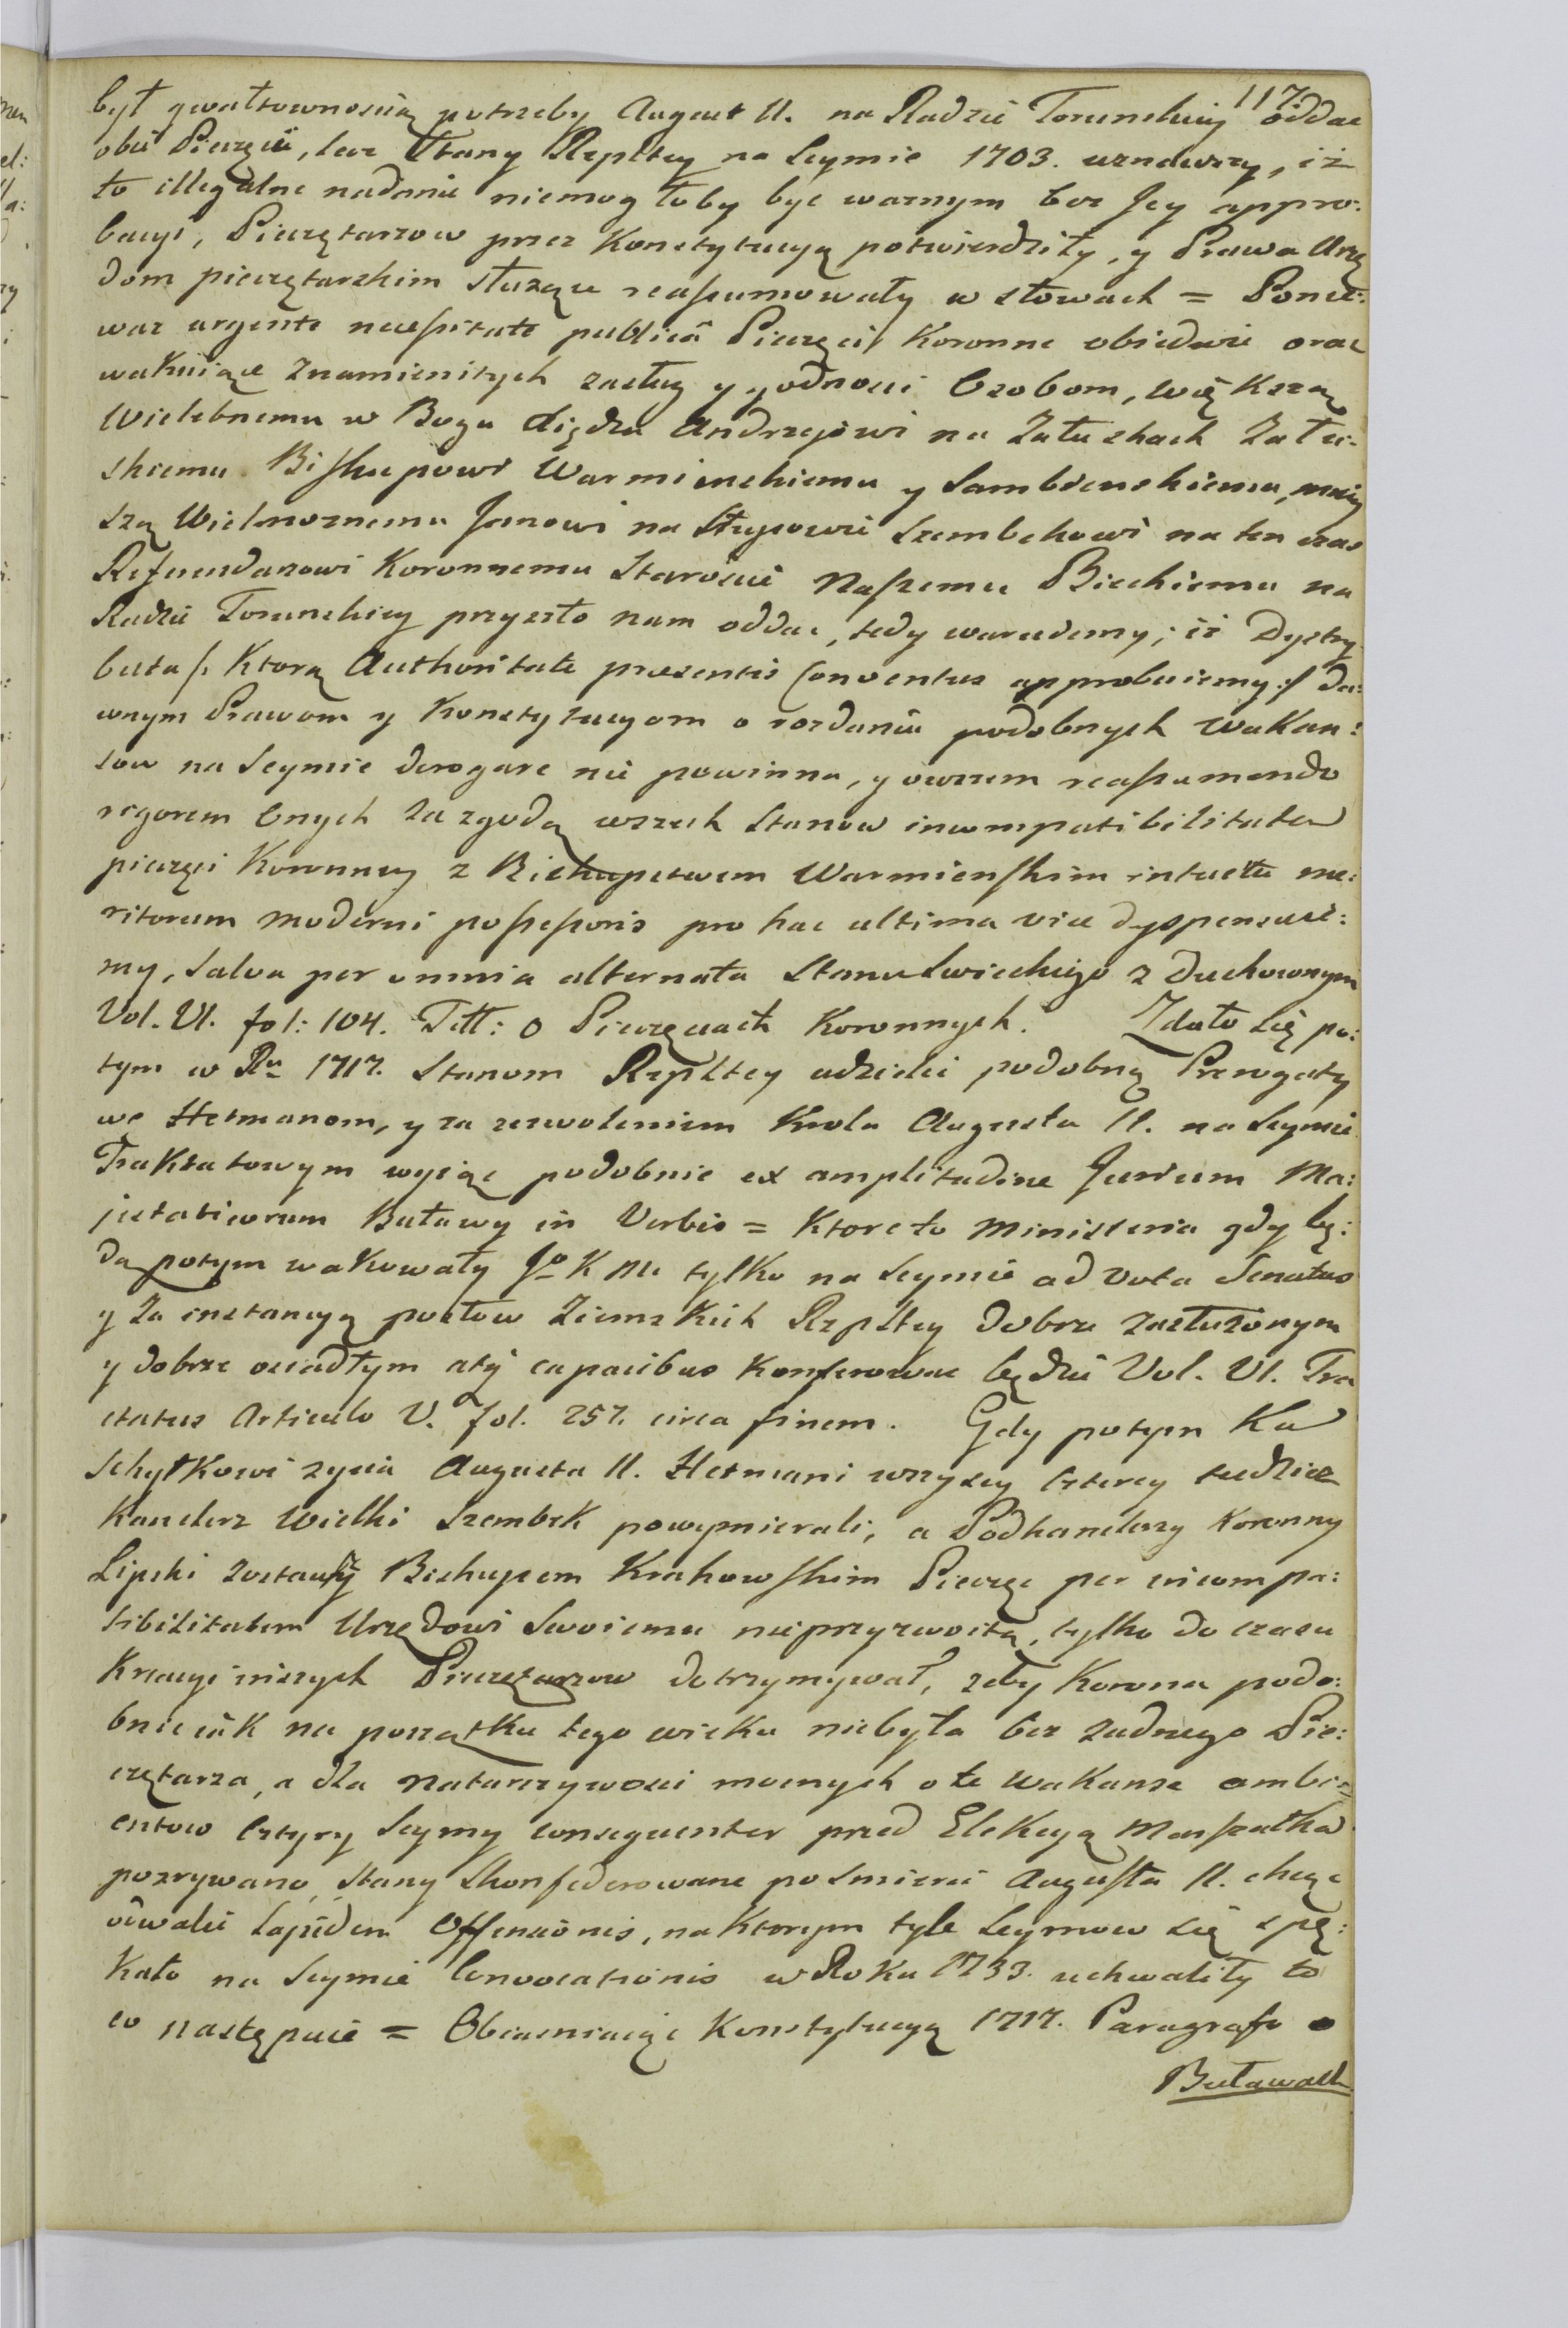 117.
był gwałtownoscią potrzeby August II. na Radzie Torunskiey oddac
obie Pieczęcie, lecz Stany Rzpltey na Seymie 1703. uznawszy, iż
to illegalne nadanie niemogłoby byc waznym bez Jey appro:
bacyi, Pieczętarzow przez Konstytucyą potwierdziły, y Prawa Urzę
dom pieczętarskim słuzące reassumowały w słowach = Ponie:
waz urgente necessitate publicâ Pieczęci Koronne obiedwie oraz
wakuiące Znamienitych zasług y godnosci Osobom, większą
Wielebnemu w Bogu Xiędzu Andrzejowi na Załuskach Zału:
skiemu Biskupowi Warmienskiemu y Sambienskiemu, mniey
szą Wielmoznemu Janowi na Słupowie Szembekowi na ten czas
Referendarzowi Koronnemu Staroscie Naszemu Bieckiemu na
Radzie Torunskiey przyszło nam oddac, tedy warujemy; iż Dystry
buta /: Ktorą Authoritate praesentis Conventus approbuiemy :/ da:
wnym Prawom y Konstytucyom o rozdaniu podobnych Wakan:
sow na Seymie derogare nie powinna, y owszem reassumendo
rigorem Onych za zgodą wszech Stanow incompatibilitatem
pieczęci Koronney z Biskupstwem Warmienskim intuitu me:
ritorum moderni possessoris pro hac ultima vice dyspensuie:
my, salva per omnia alternata Stanu Swieckiego z Duchownym
Vol. VI. fol: 104. Titt: O Pieczęciach Koronnych. Zdało się po:
tym w Ru 1717. Stanom Rzpltey udzielic podobną Prerogaty
wę Hetmanom, y za zezwoleniem Krola Augusta II. na Seymie
Traktatowym wyiąc podobnie ex amplitudine Jurium Ma:
jestaticorum Buławy in Verbis = Ktore to Ministeria gdy bę:
dą potym wakowały Jo K Mc tylko na Seymie ad vota Senatus
y za instancyą posłow Ziemskich Rzpltey dobrze zasłuzonym
y dobrze osiadłym atq capacibus konferowac będzie Vol. VI. Tra
ctatus Articulo V. fol. 257. circa finem. Gdy potym Ku
Schyłkowi zycia Augusta II. Hetmani wszyscy Czterey tudziez
Kanclerz Wielki Szembek powymierali; a Podkanclerzy Koronny
Lipski zostawszy Biskupem Krakowskim Pieczęc per incompa:
tibilitatem Urzędowi Swoiemu nieprzyzwoitą, tylko do czasu
Kreacyi inszych Pieczętarzow dotrzymywał, zeby Korona podo:
bnie iak na początku tego wieku niebyła bez zadnego Pie:
czętarza, a dla Natarczywosci mocnych o te Wakanse ambi=
entow Cztyry Seymy consequenter przed Elekcyą Marszałka
pozrywano, Stany Skonfederowane po Smierci Augusta II. chcąc
uwalic Lapidem Offensionis, na Ktorym tyle Seymow się spę:
kało na Seymie Convocationis w Roku 1733. uchwaliły to
co następuie = Obiasniaiąc Konstytucyą 1717. Paragrafo o
Buławach